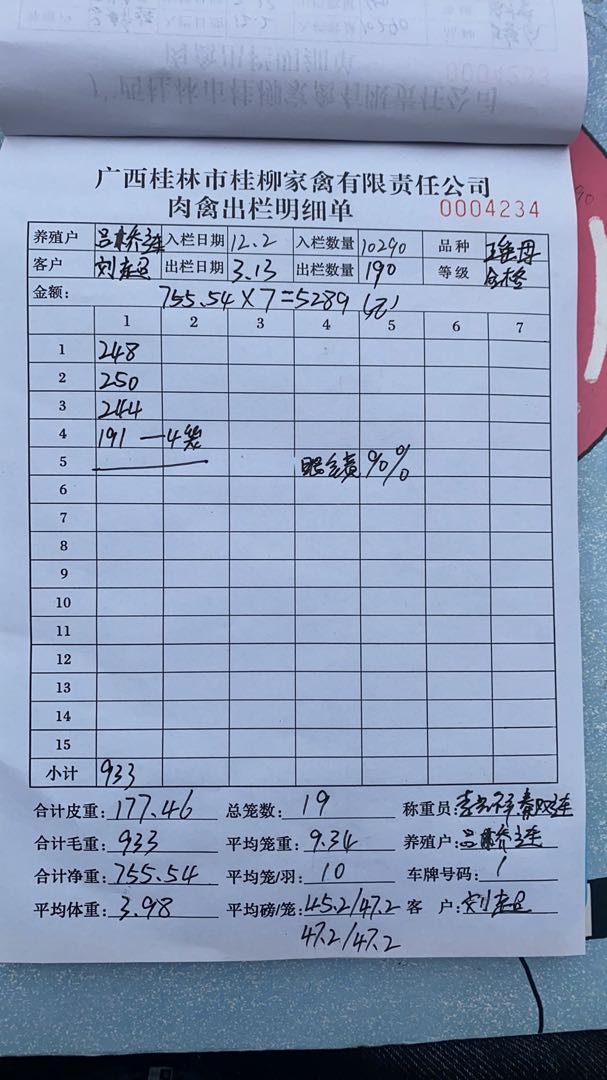 0004233
肉禽出栏明细单
广西桂林市桂柳家禽有限责任公司
广西桂林市桂柳家禽有限责任公司
肉禽出栏明细单 0004234
养殖户 入栏日期 12.2 入栏数量 10290 品种
客户 出栏日期 3.13 出栏数量 190 等级 合格
金额: 755.54×7=5289(元)
1 2 3 4 5 6 7
1 248
2 250
3 244
4 191 —4笼
5 90%
6
7
8
9
10
11
12
13
14
15
小计 933
合计皮重: 177.46 总笼数: 19 称重员:
合计毛重: 933 平均笼重: 9.34 养殖户:
合计净重: 755.54 平均笼/羽: 10 车牌号码: 1
平均体重: 3.98 平均磅/笼: 45.2/47.2 客户:
47.2/47.2